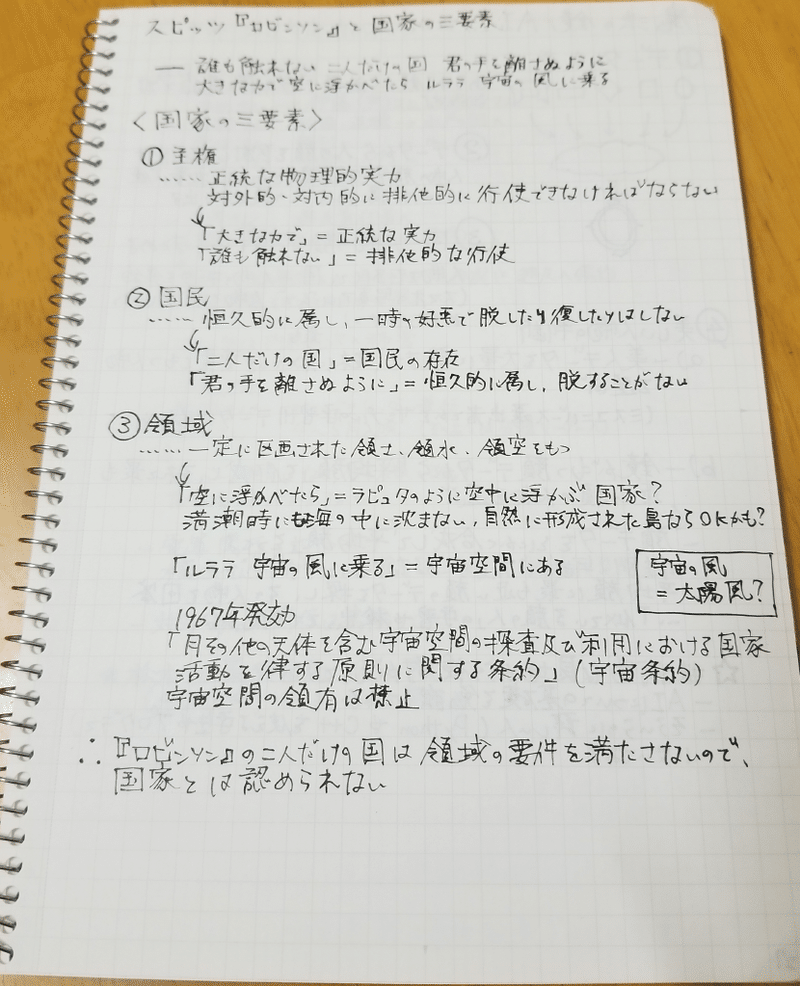 スピッツ『ロビンソン』と国家の三要素
── 誰も触れない 二人だけの国 君の手を離さぬように
大きな力で空に浮かべたら ルララ 宇宙の風に乗る
〈国家の三要素〉
① 主権
…… 正統な物理的実力
対外的・対内的に排他的に行使できなければならない
「大きな力で」=正統な実力
「誰も触れない」=排他的な行使
② 国民
…… 恒久的に属し、一時の好悪で脱したり復したりはしない
「二人だけの国」=国民の存在
「君の手を離さぬように」=恒久的に属し、脱することがない
③ 領域
…… 一定に区画された領土、領水、領空をもつ
「空に浮かべたら」=ラピュタのように空中に浮かぶ国家?
満潮時にも海の中に沈まない、自然に形成された島ならOKかも?
「ルララ 宇宙の風に乗る」=宇宙空間にある
宇宙の風
=太陽風?
1967年発効
「月その他の天体を含む宇宙空間の探査及び利用における国家
活動を律する原則に関する条約」(宇宙条約)
宇宙空間の領有は禁止
∴『ロビンソン』の二人だけの国は領域の要件を満たさないので、
国家とは認められない